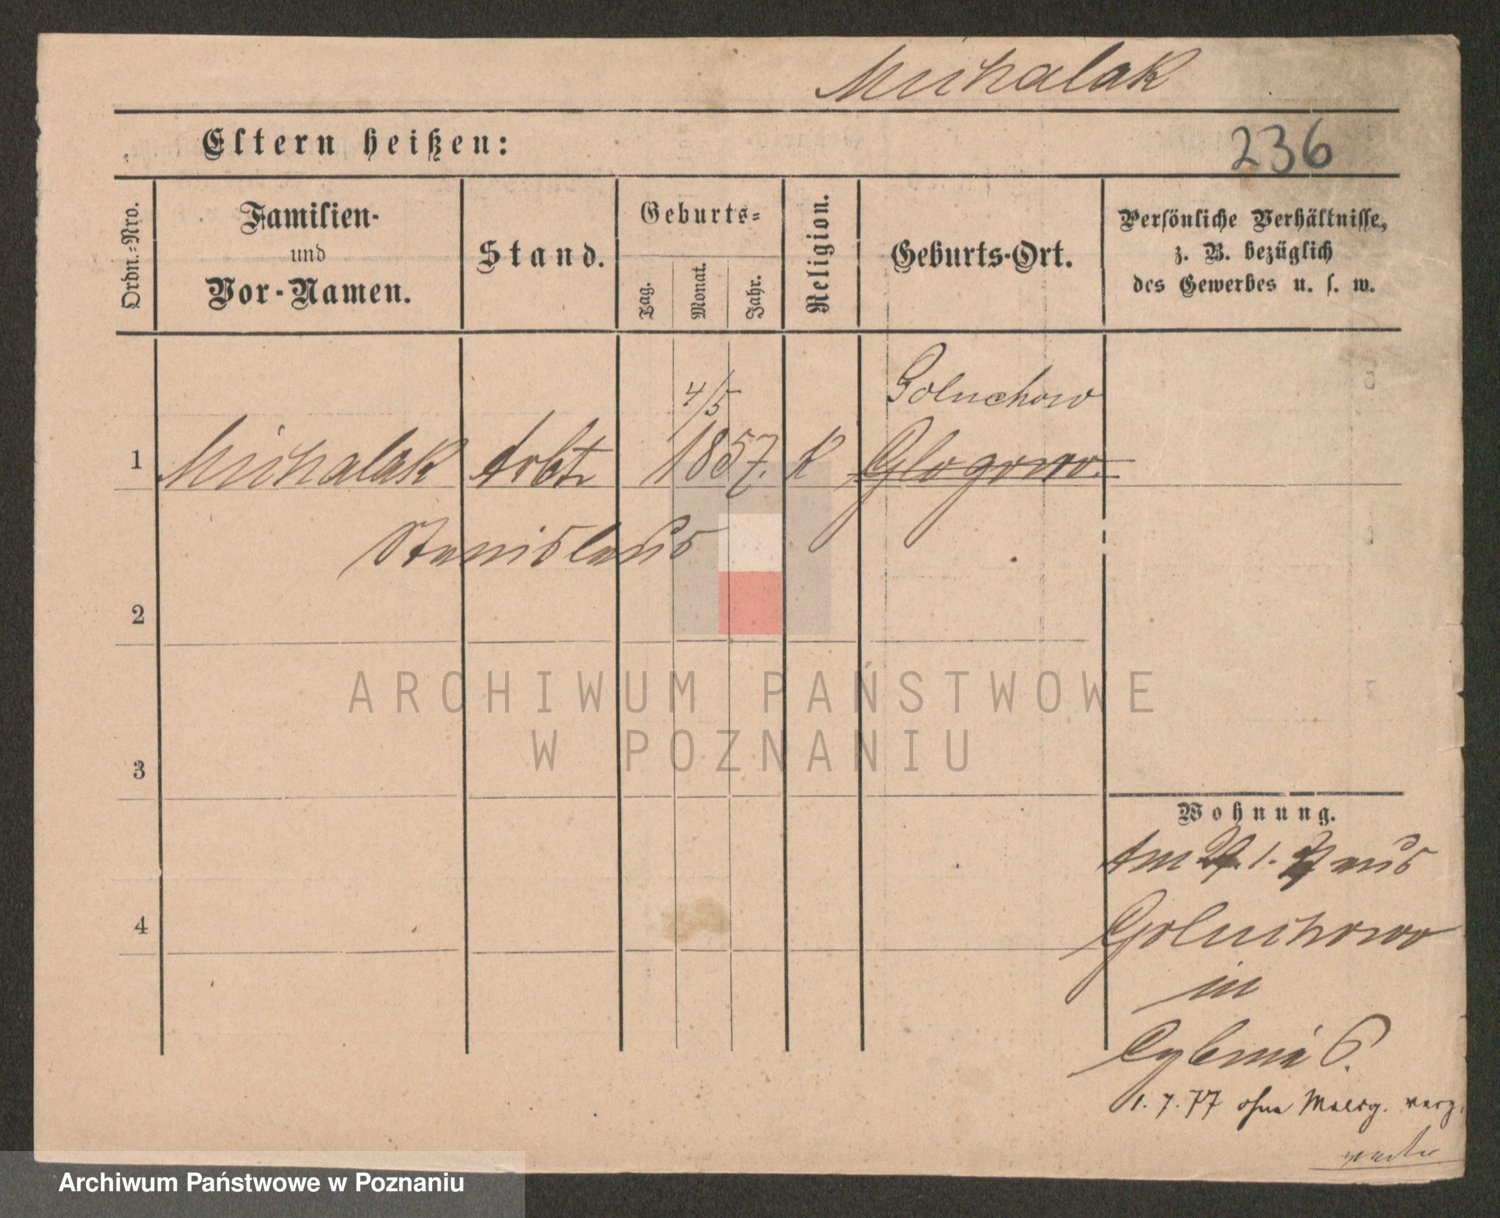 Michalak
Eltern heißen:
236
Ordn.-Nro.
Familien-
und
Vor-Namen.
Stand.
Geburts-
Tag.
Monat.
Jahr.
Religion.
Geburts-Ort.
Persönliche Verhältnisse,
z. B. bezüglich
des Gewerbes u. s. w.
4/5
Goluchow
1 Michalak Arbtr 1857. K Glogowo.
Stanislaus
2
3
4
ARCHIWUM PAŃSTWOWE
W POZNANIU
Wohnung.
Am 1. aus
Goluchowo
in
Cybina 6.
1. 7. 77 ohne Meldg. verz.
Archiwum Państwowe w Poznaniu